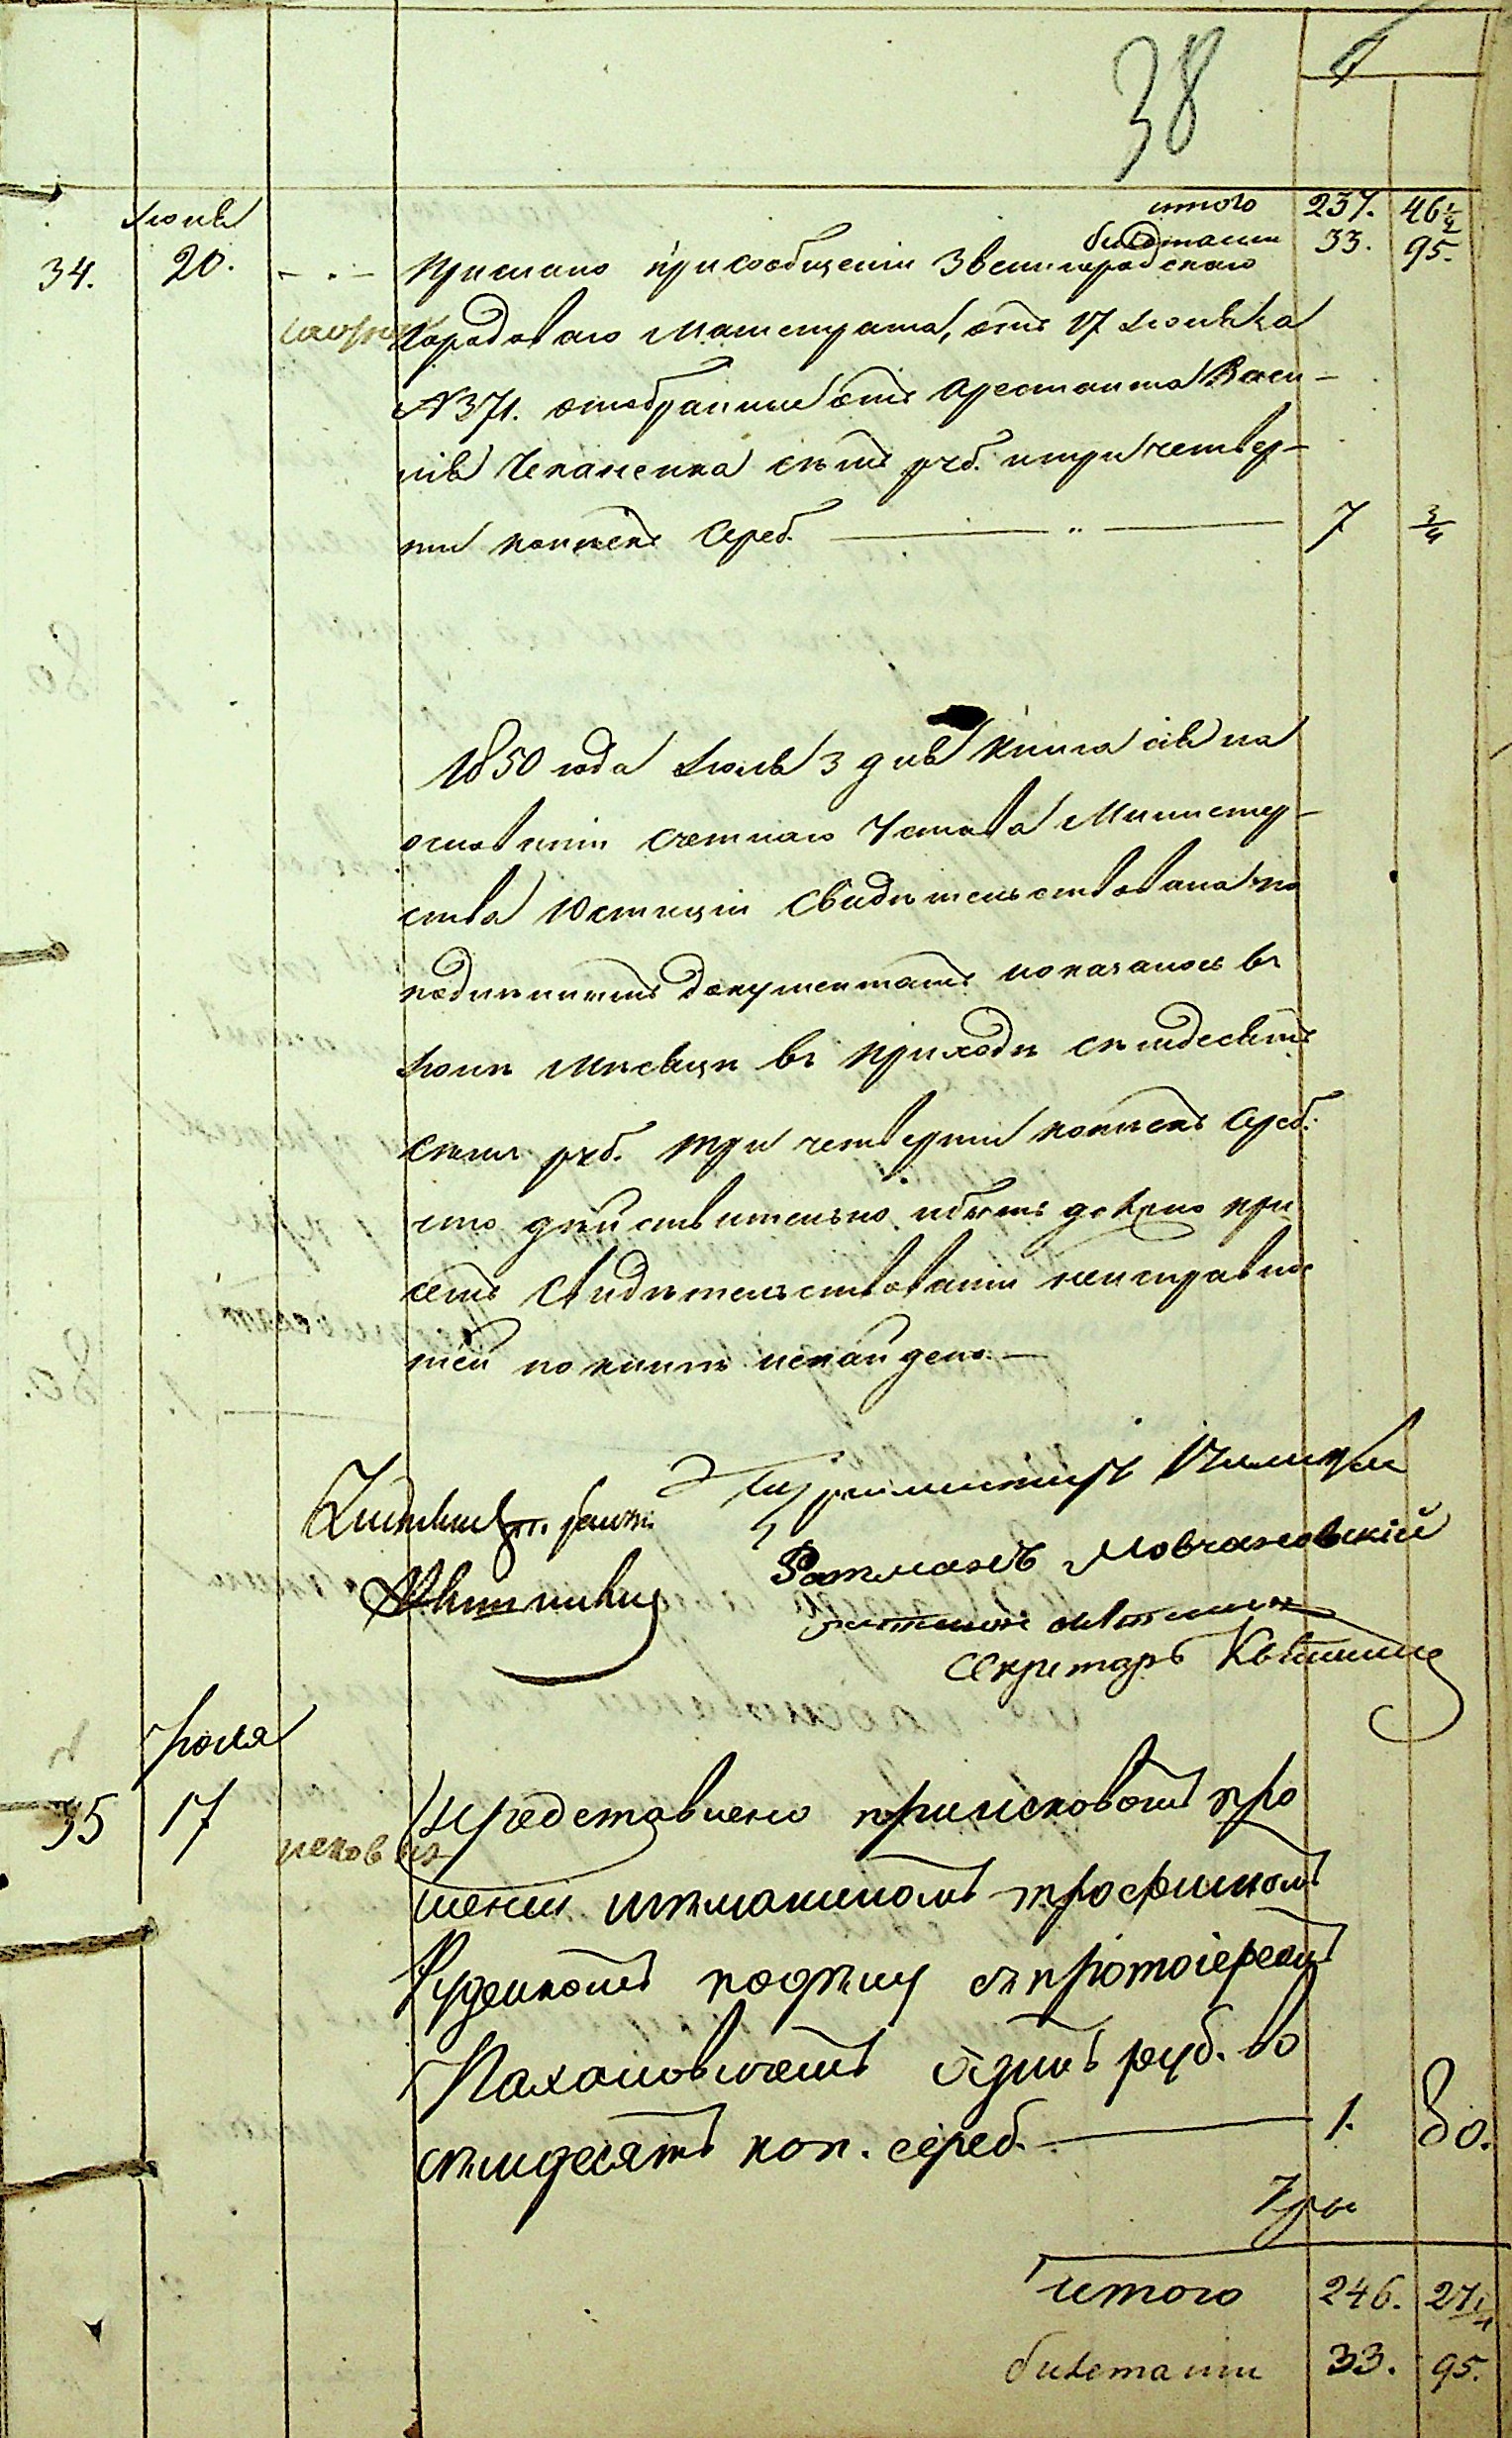 38
итого 237. 46½
билетами 33. 95.
Іюня
34. 20. Прислано при сообщеніи Звенигородскаго
Городоваго Магистрата, отъ 17 Іюня за
№ 371. отобранные отъ Арестанта Васи-
лія Чекаленка семь руб. и три четвер-
ти копѣекъ Сереб. 7 ¾
1850 года Іюля 3 дня Книга сія на
основаніи Счетнаго Устава Министер-
ства Юстиціи Свидѣтельствована по
подлиннымъ документамъ показалось въ
Іюнѣ Мѣсяцѣ въ приходѣ
семь руб. три четверти копѣекъ Сереб.
что дѣйствительно при
семъ Свидѣтельствованіи неисправнос
тей по книгѣ ненайдено.
Ратманъ Мовчановскій
Секретарь
Іюля
35 17 Представлено при исковомъ про
шеніи мѣщаниномъ Трофимомъ
Руденкомъ по дѣлу съ протоіереемъ
одинъ руб. во
семдесятъ коп. сереб. 1. 80.
итого 246. 27¼
билетами 33. 95.